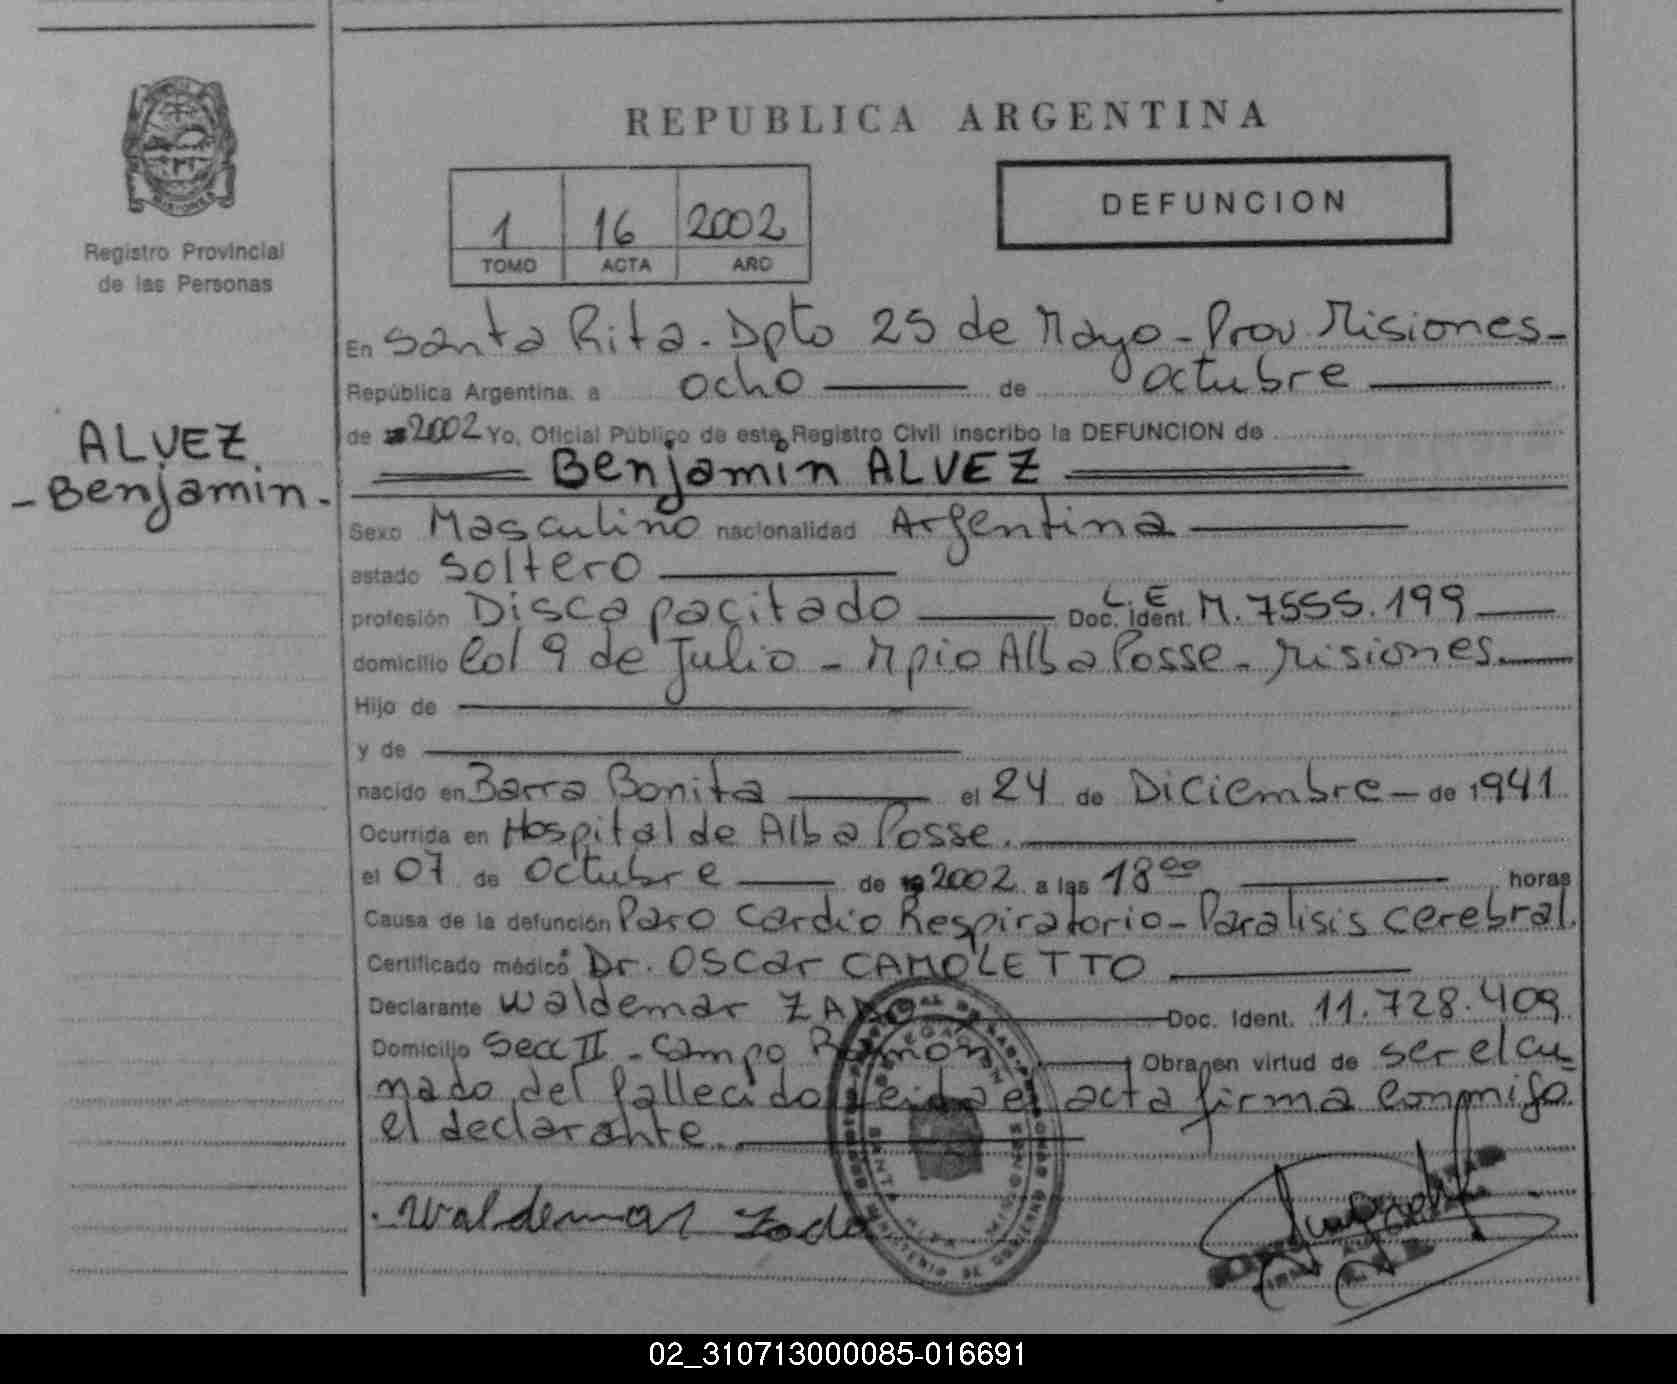 REPUBLICA ARGENTINA
MISIONES
Registro Provincial
de las Personas
1 16 2002
TOMO ACTA AÑO
DEFUNCION
En Santa Rita. Dpto 25 de Mayo - Prov Misiones -
República Argentina, a ocho de octubre
de 2002 Yo, Oficial Público de este Registro Civil inscribo la DEFUNCION de
ALVEZ
- Benjamin -
Benjamin ALVEZ
Sexo Masculino nacionalidad Argentina
estado Soltero
profesión Discapacitado Doc. Ident. L.E M. 7555.199
domicilio Col 9 de Julio - Mpio Alba Posse - Misiones.
Hijo de
y de
nacido en Barra Bonita el 24 de Diciembre - de 1941
Ocurrida en Hospital de Alba Posse.
el 07 de octubre de 2002 a las 18 00 horas
Causa de la defunción Paro Cardio Respiratorio - Paralisis cerebral.
Certificado médico Dr. Oscar CAMOLETTO
Declarante Waldemar Doc. Ident. 11.728.409
Domicilio Secc II - Campo Ramon Obra en virtud de ser el cu-
nado del fallecido leida el acta firma conmigo
el declarante.
Waldemar
02_310713000085-016691